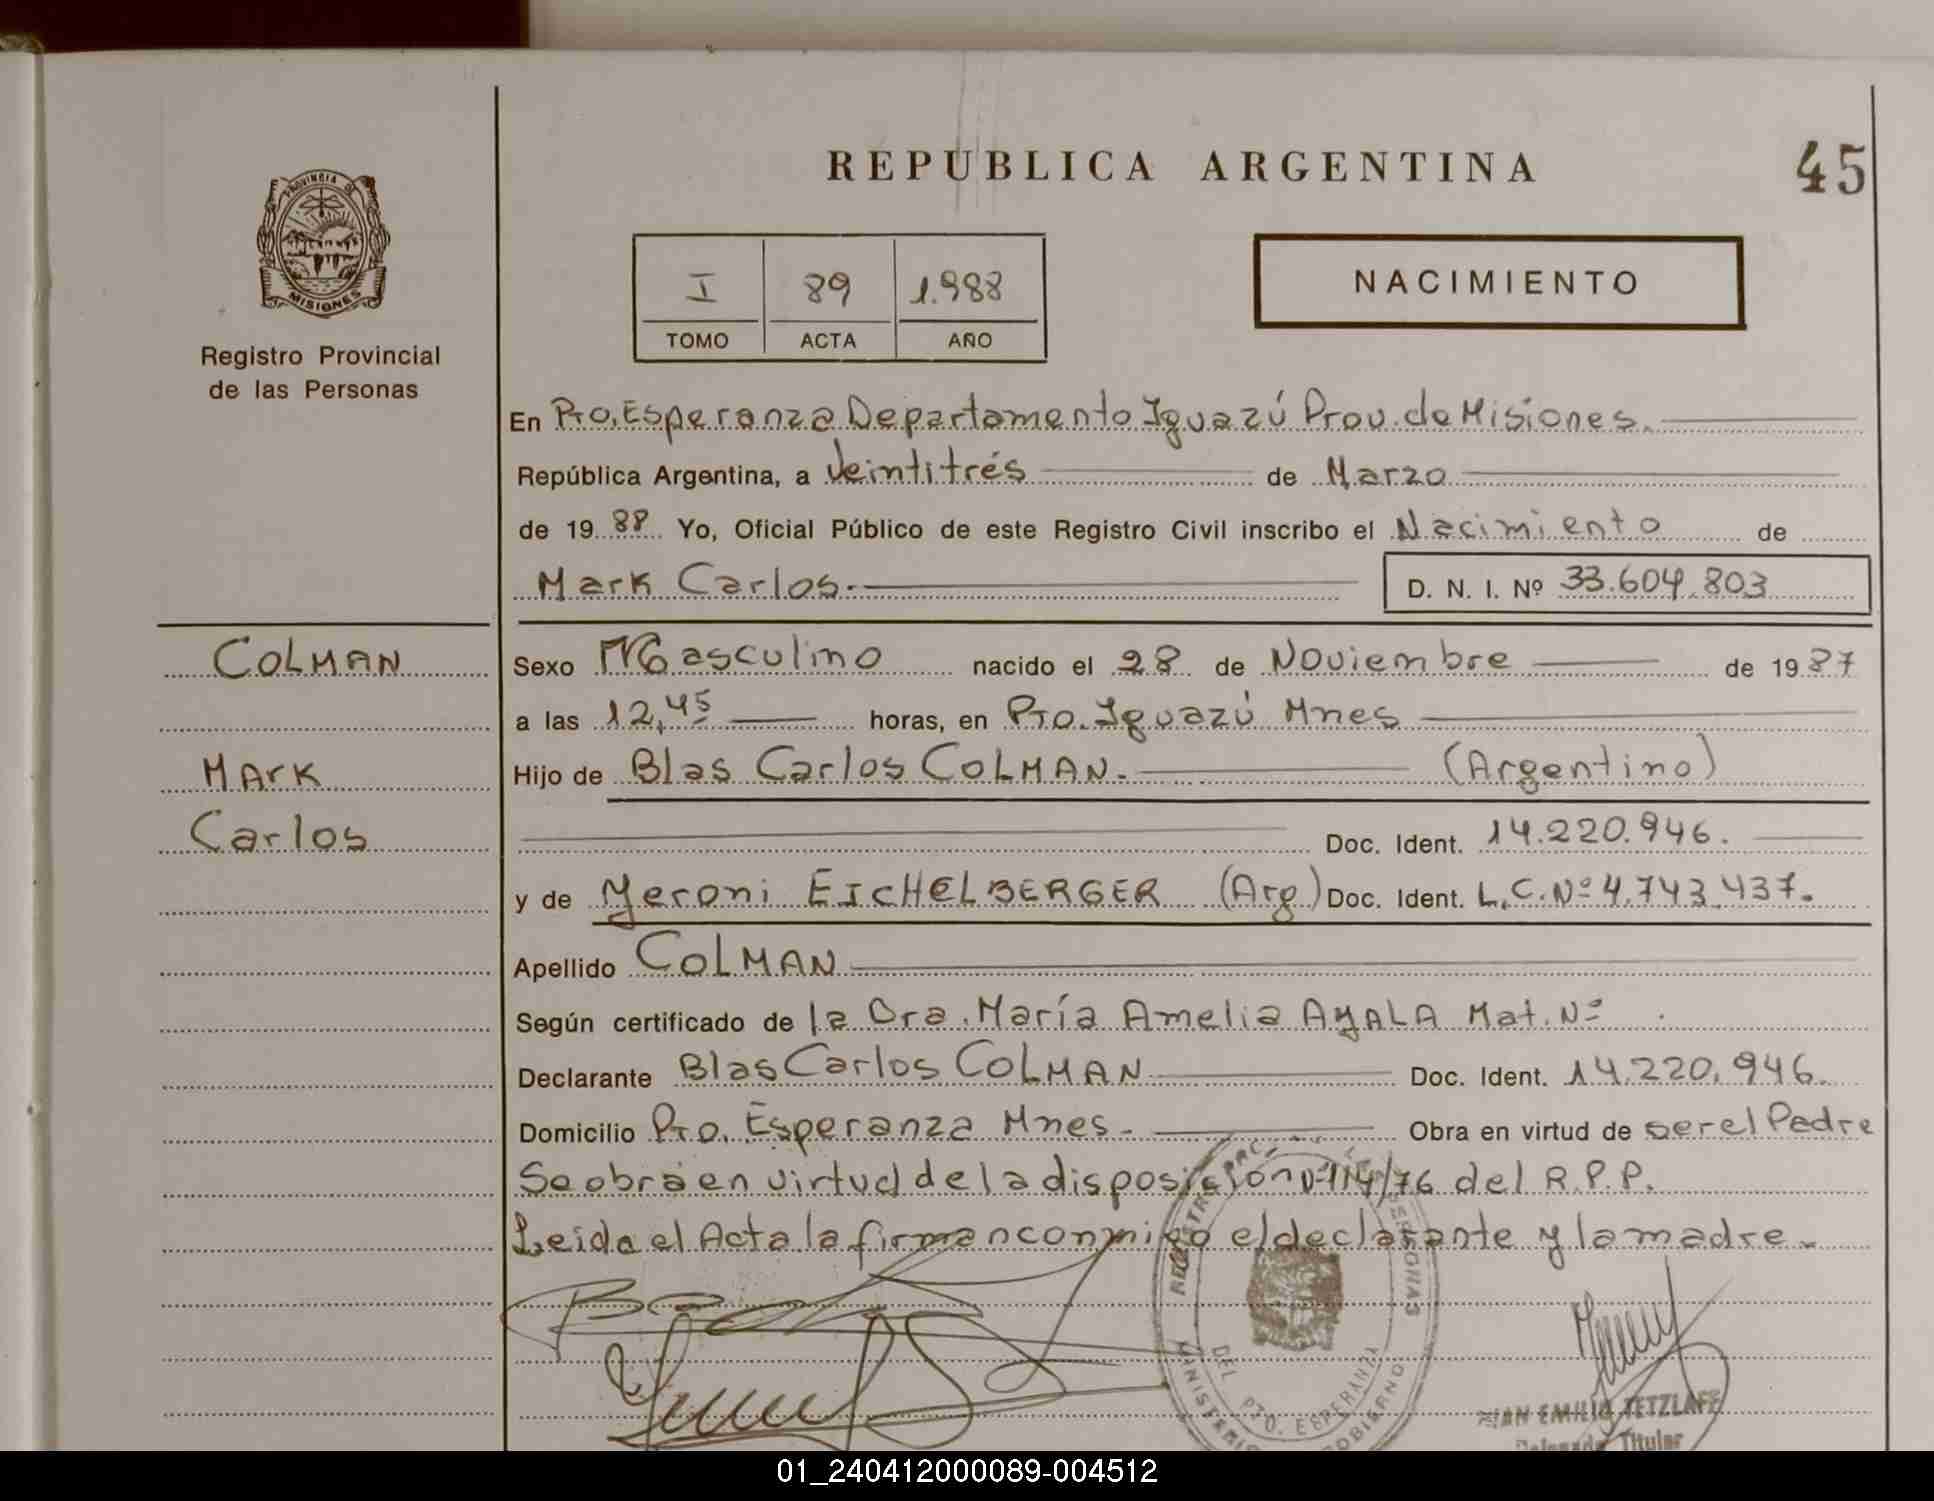 REPUBLICA ARGENTINA
45
PROVINCIA DE
MISIONES
Registro Provincial
de las Personas
I 89 1.988
TOMO ACTA AÑO
NACIMIENTO
En Pto. Esperanza Departamento Iguazú Prov. de Misiones.
República Argentina, a Veintitrés de Marzo
de 19 88 Yo, Oficial Público de este Registro Civil inscribo el Nacimiento de
Mark Carlos. D. N. I. Nº 33.604.803
COLMAN
Sexo Masculino nacido el 28 de Noviembre de 19 87
a las 12,45 horas, en Pto. Iguazú Mnes
MArK
Hijo de Blas Carlos COLMAN. (Argentino)
Carlos
Doc. Ident. 14.220.946.
y de Yeroni EICHELBERGER (Arg) Doc. Ident. L.C.Nº 4.743.437.
Apellido COLMAN
Según certificado de la Dra. María Amelia AYALA Mat. Nº
Declarante Blas Carlos COLMAN Doc. Ident. 14.220.946.
Domicilio Pto. Esperanza Mnes. Obra en virtud de ser el Padre
Se obra en virtud de la disposición Nº 114/76 del R.P.P.
Leida el Acta la firman conmigo el declarante y la madre.
PERSONAS
DEL PTO. ESPERANZA
JUAN EMILIO TETZLAFF
Delegado Titular
01_240412000089-004512